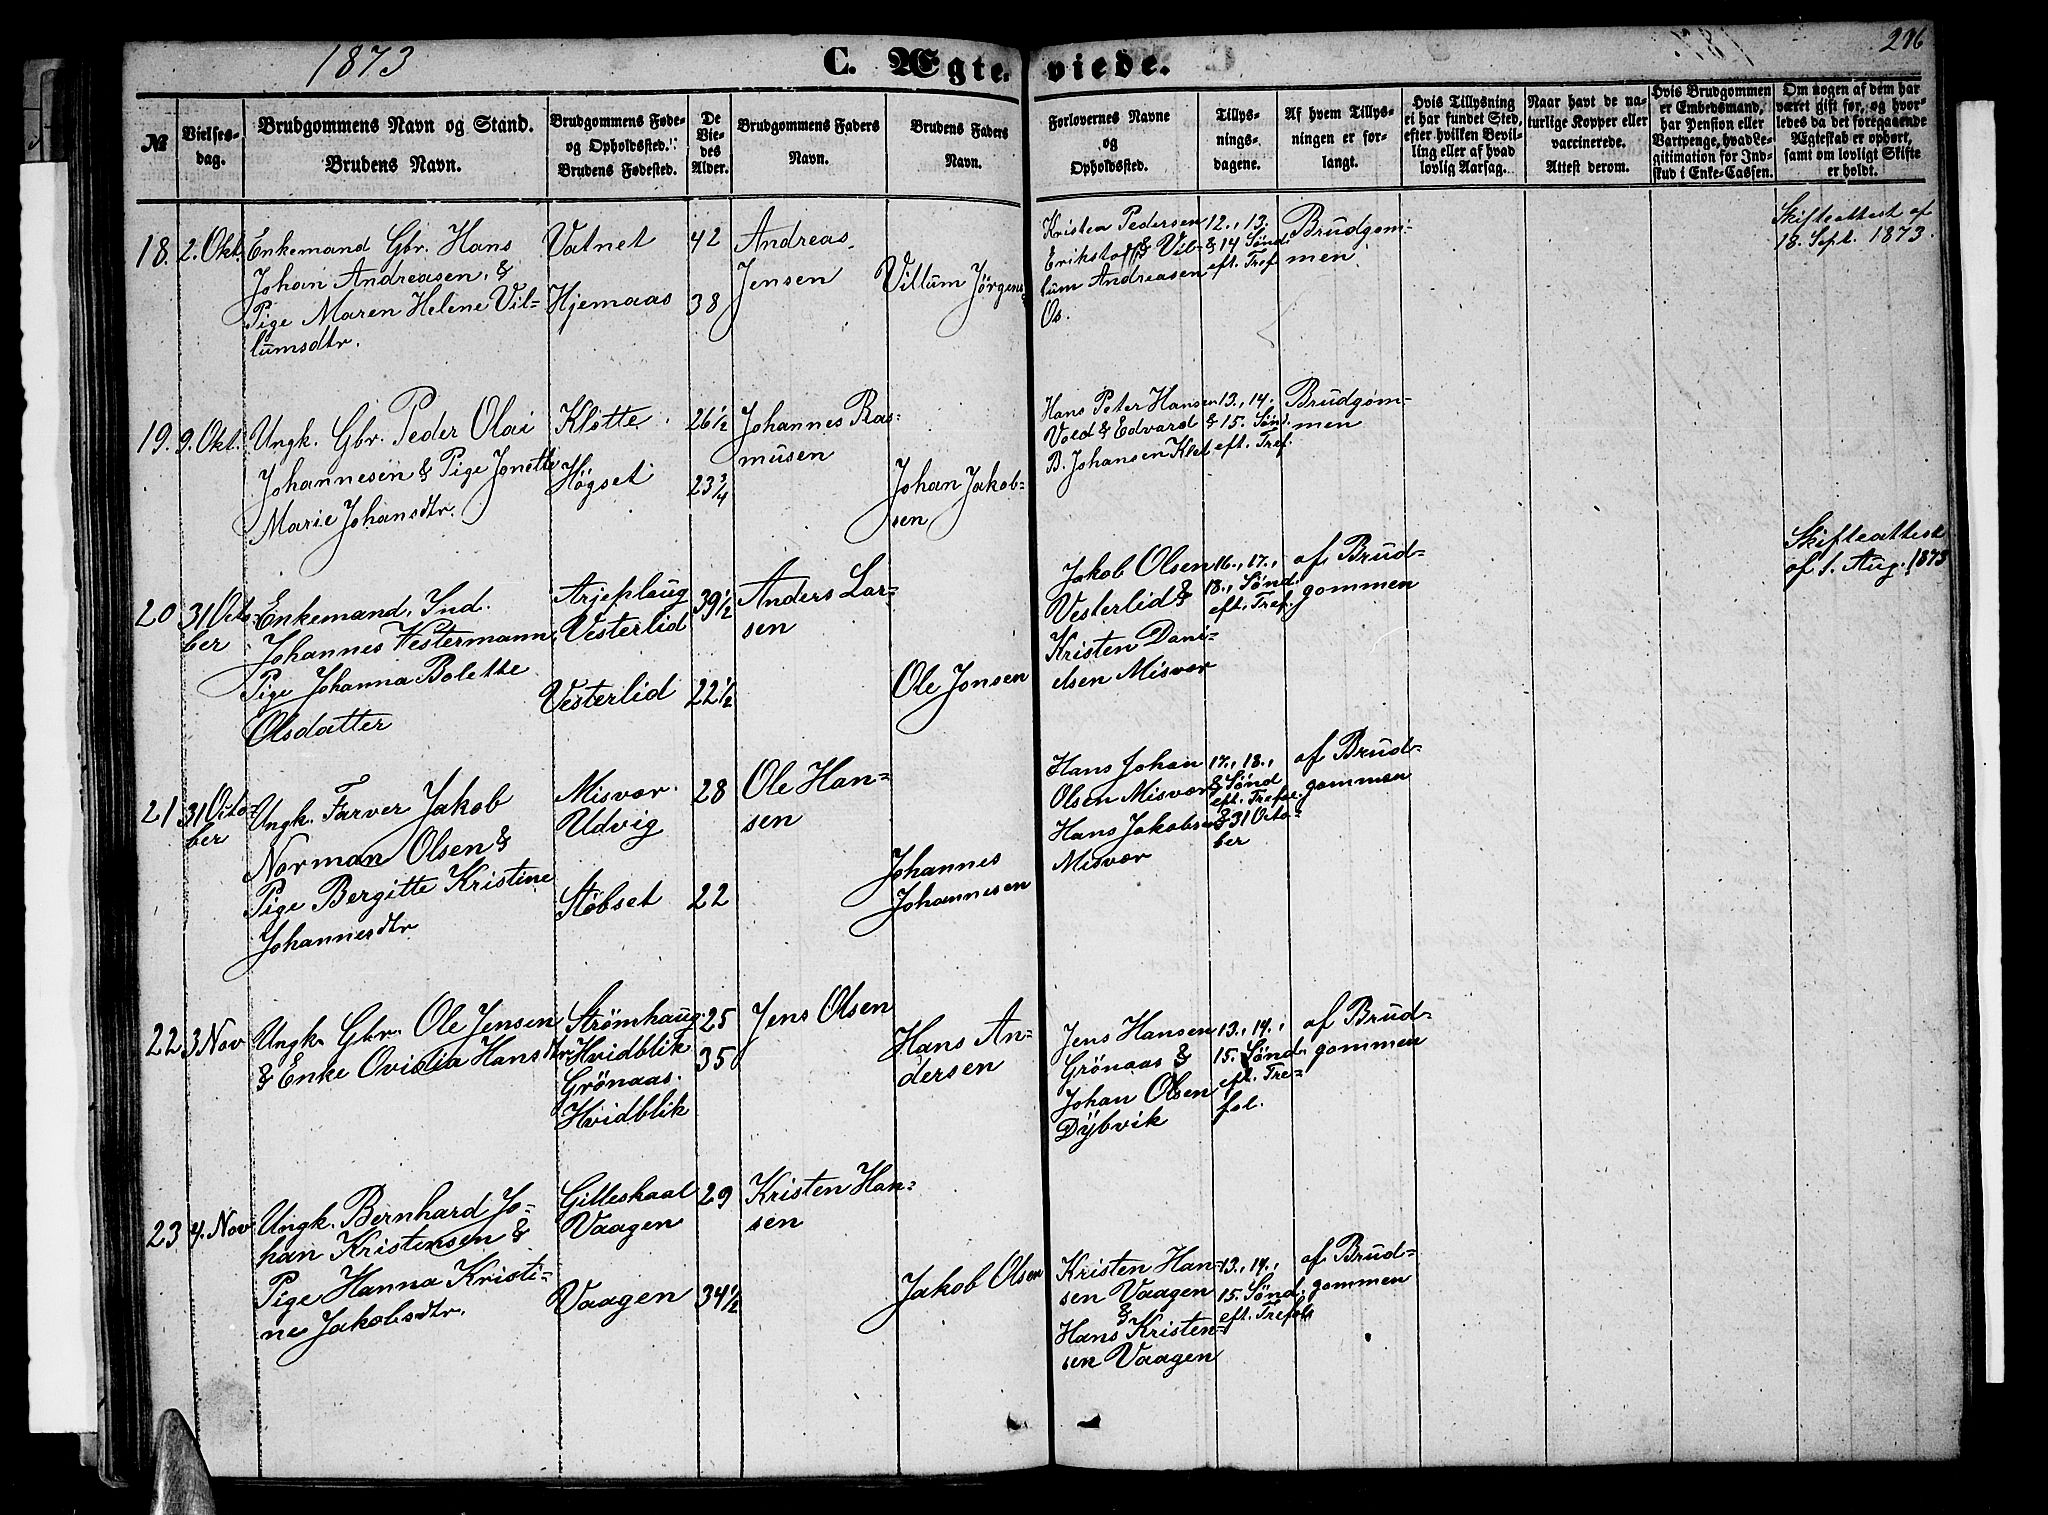 1873
C. Ægte-
viede.
276
№
Vielses-
dag.
Brudgommens Navn og Stand.
Brudens Navn.
Brudgommens Føde-
og Opholdssted.
Brudens Fødested.
De
Vie-
des
Alder.
Brudgommens Faders
Navn.
Brudens Faders
Navn.
Forlovernes Navne
og
Opholdssted.
Tillys-
nings-
dagene.
Af hvem Tillys-
ningen er for-
langt.
Hvis Tillysning
ei har fundet Sted,
efter hvilken Bevil-
ling eller af hvad
lovlig Aarsag.
Naar havt de na-
turlige Kopper eller
vaccinerede.
Attest derom.
Hvis Brudgommen
er Embedsmand,
har Pension eller
Vartpenge, hvad Le-
gitimation for Ind-
skud i Enke-Cassen.
Om nogen af dem har
været gift før, og hvor-
ledes da det foregaaende
Ægteskab er ophørt,
samt om lovligt Skifte
er holdt.
18.
2. Okt.
Enkemand Gbr. Hans
Johan Andreasen, &
Pige Maren Helene Vil-
lumsdtr.
Vatnet
Hjemaas
42
38
Andreas
Jensen
Villum Jörgens.
Kristen Pedersen
Erikstoff & Vil-
lum Andreasen
Os.
12., 13.
& 14 Sönd.
eft. Tref.
Brudgom-
men
Skifteattest af
18. Sept. 1873.
19.
9. Okt.
Ungk. Gbr. Peder Olai
Johannesen & Pige Jonette
Marie Johansdtr.
Kløtte
Högset
26 1/2
23 3/4
Johannes Ras-
musen
Johan Jakob-
sen
Hans Peter Hansen
Vold & Edvard
B. Johansen Klet
13., 14.
& 15. Sönd.
eft. Tref.
Brudgom-
men
20
31 Octo-
ber
Enkemand, Ind.
Johannes Vestermann,
Pige Johanna Bolette
Olsdatter
Arjeplaug
Vesterlid
Vesterlid
39 1/2
22 1/2
Anders Lar-
sen
Ole Jonsen
Jakob Olsen
Vesterlid &
Kristen Dani-
elsen Misvær
16., 17.,
18., Sönd.
eft. Tref.
af Brud-
gommen
Skifteattest
af 1. Aug. 1873
21
31 Octo-
ber
Ungk. Farver Jakob
Norman Olsen &
Pige Bergitte Kristine
Johannesdtr
Misvær.
Udvig
Støbset
28
22
Ole Han-
sen
Johannes
Johannesen
Hans Johan
Olsen Misvær
Hans Jakobsen
Misvær
17., 18.,
& Sönd
eft. Trefol.
& 31 Octo-
ber
af Brud-
gommen
22
3 Nov
Ungk. Gbr. Ole Jensen
& Enke Ovidia Hansdtr
Strömhaug
Hvidblik
Grönaas.
Hvidblik
25
35
Jens Olsen
Hans An-
dersen
Jens Hansen
Grönaas &
Johan Olsen
Dybvik
13., 14.,
15. Sönd.
eft. Tre-
fol.
af Brud-
gommen
23
4. Nov
Ungk. Bernhard Jo-
han Kristensen &
Pige Hanna Kristi-
ne Jakobsdtr.
Gilleskaal
Vaagen
Vaagen
29
34 1/2
Kristen Han-
sen
Jakob Olsen
Kristen Han-
sen Vaagen
&
Hans Kristen-
sen Vaagen
13., 14.,
15. Sönd.
eft. Trefol.
af Brud-
gommen